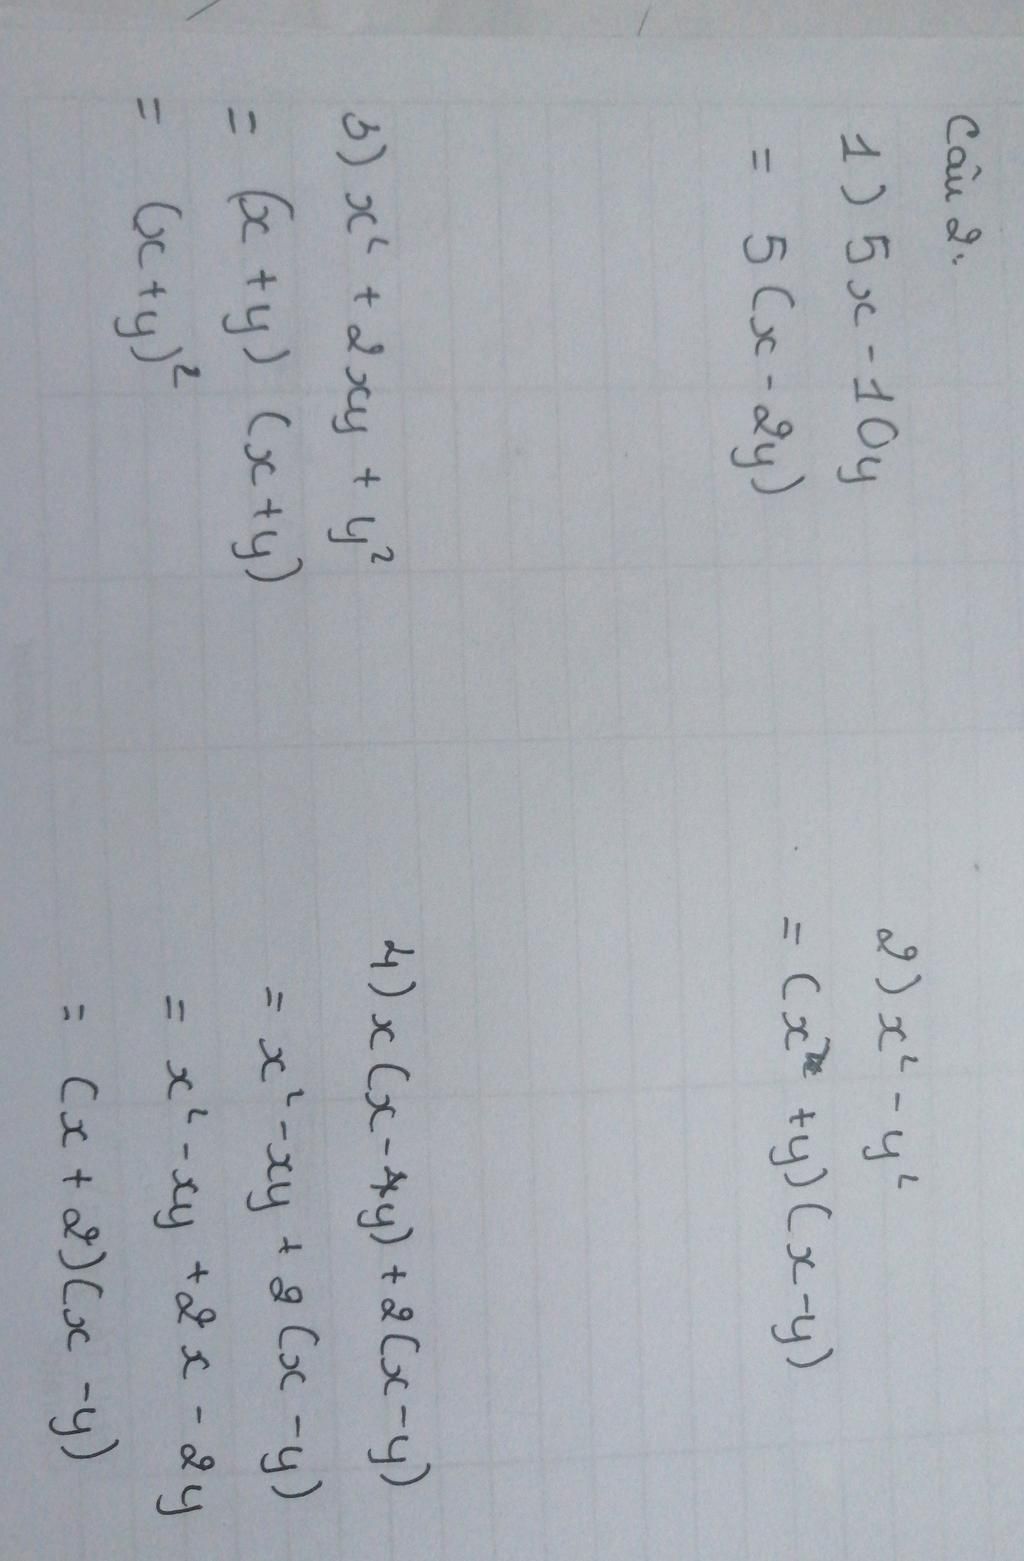 Câu 2:
1) 5x - 10y
= 5(x - 2y)
2) x² - y²
= (x + y)(x - y)
3) x² + 2xy + y²
= (x + y) (x + y)
= (x + y)²
4) x(x - y) + 2(x - y)
= x² - xy + 2(x - y)
= x² - xy + 2x - 2y
= (x + 2)(x - y)